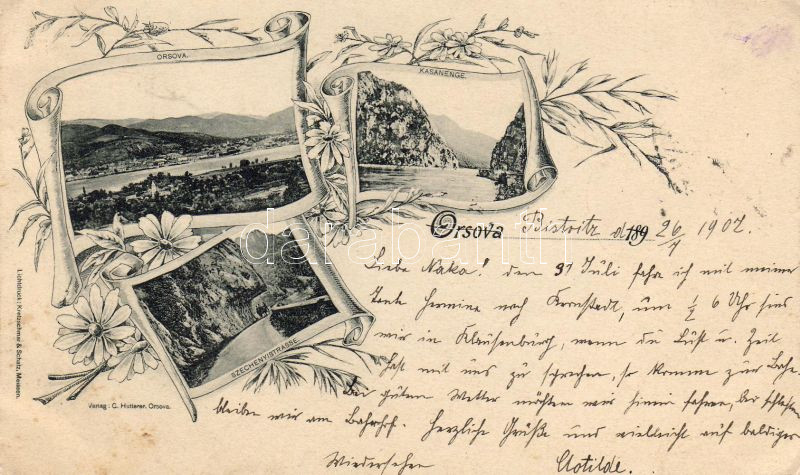 ORSOVA.
KASANENGE.
SZECHENYISTRASSE.
Orsova Bistritz d 189 26/7 1902.
Liebe Naka! den 31 Juli fahre ich mit meiner
Tante Hermine nach Kronstadt, um ½ 6 Uhr sind
wir in Klausenburg, wenn du Lust u. Zeit
hast mit uns zu sprechen, so komme zur Bahn.
Bei gutem Wetter möchten wir hinein fahren, bei schlechtem
bleiben wir am Bahnhof. Herzliche Grüße und vielleicht auf baldiges
Wiedersehen Clotilde.
Verlag: C. Hutterer, Orsova.
Lichtdruck: Kretzschmar & Schatz, Meissen.
darabanth